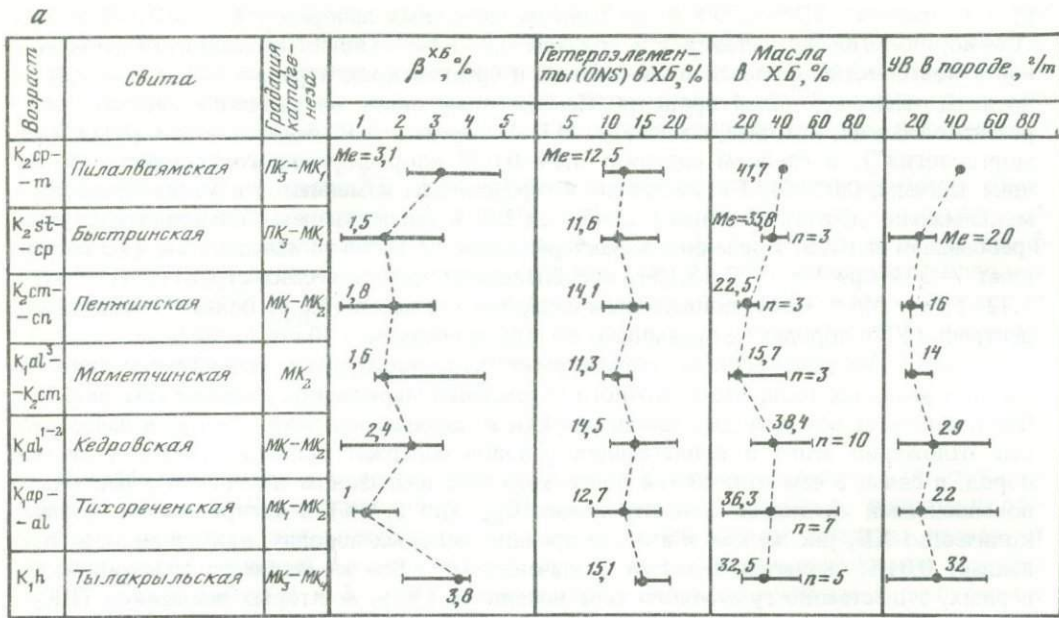 а
Возраст
Свита
Градация катагенеза
β^Х.Б., %
1 2 3 4 5
Гетероэлемен-
ты (ONS) в ХБ, %
5 10 15 20
Масла
в ХБ, %
20 40 60 80
УВ в породе, г/т
20 40 60 80
K₂cp-
m
Пилалваямская
ПК₃-МК₁
Me=3,1
Me=12,5
41,7
K₂st-
-cp
Быстринская
ПК₃-МК₁
1,5
11,6
Me=35,8
n=3
Me=20
K₂cm-
-cn
Пенжинская
МК₁-МК₂
1,8
14,1
22,5
n=3
16
K₁al³-
-K₂cm
Маметчинская
МК₂
1,6
11,3
15,7
n=3
14
K₁al¹⁻²
Кедровская
МК₁-МК₂
2,4
14,5
38,4
n=10
29
K₁ap-
-al
Тихореченская
МК₁-МК₂
1
12,7
36,3
n=7
22
K₁h
Тылакрыльская
МК₁-МК₂
3,8
15,1
32,5
n=5
32